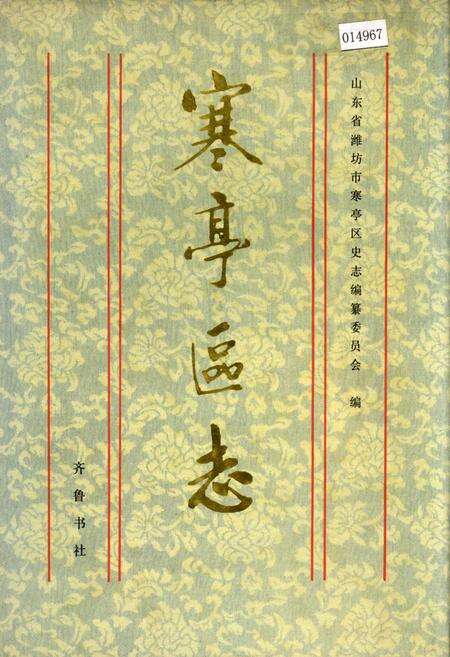 014967
山东省潍坊市寒亭区史志编纂委员会 编
寒亭區志
齐鲁书社